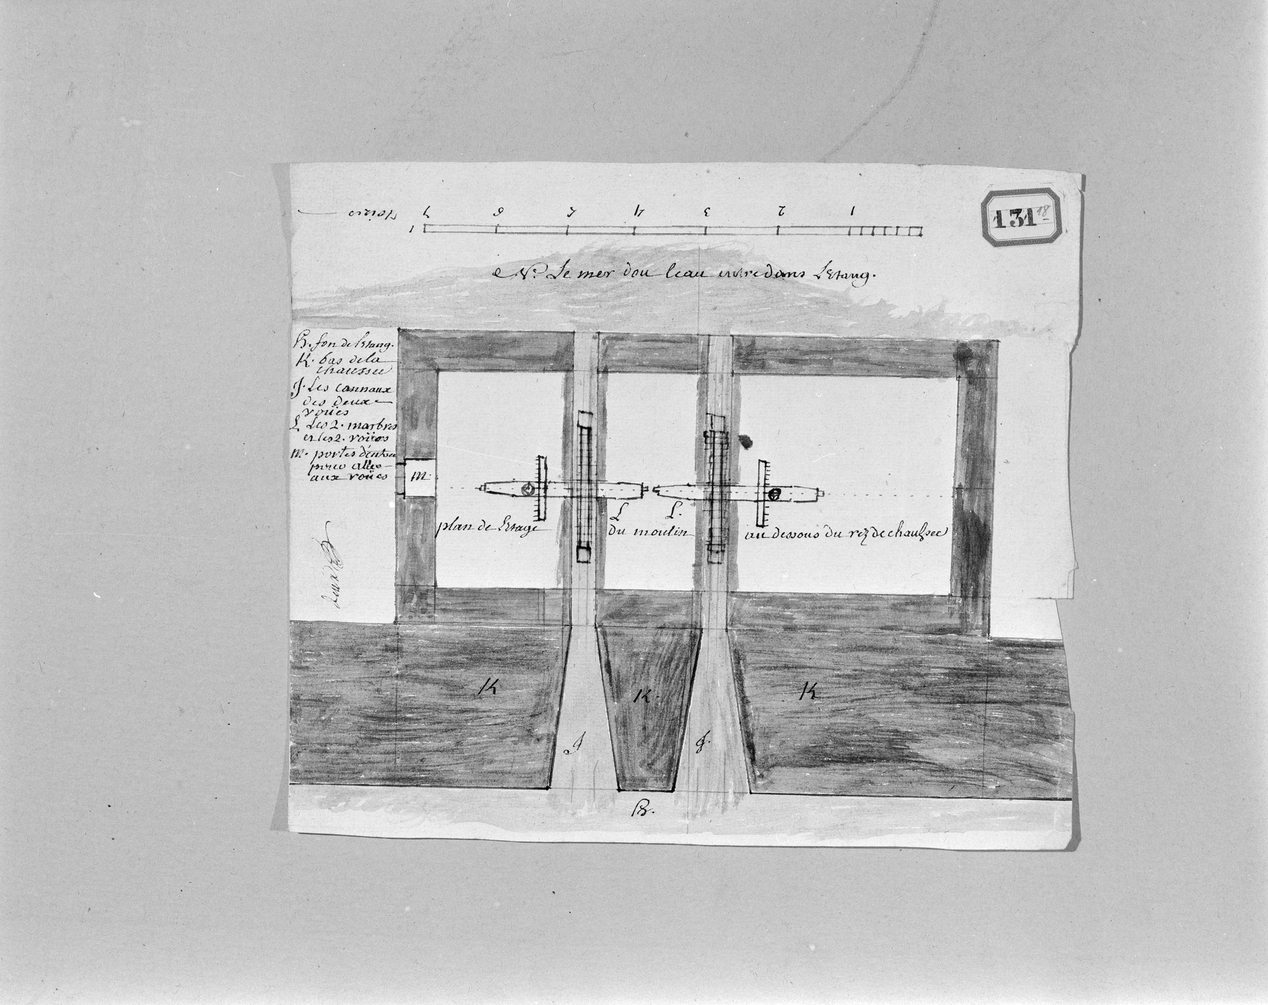 131 18
7 6 5 4 3 2 1
1
e Vr Le mer dou leau entre dans Letang.
B. fon de letang.
K. bas de la
chaussee
J. Les cannaux
des deux
rouës
L Les 2. marbres
et les 2. rouës
M. portes dentree
pour aller
aux rouës
M.
plan de letage
L
L.
du moulin
au dessous du rez de chaussee
K
K.
K
J
J.
B.